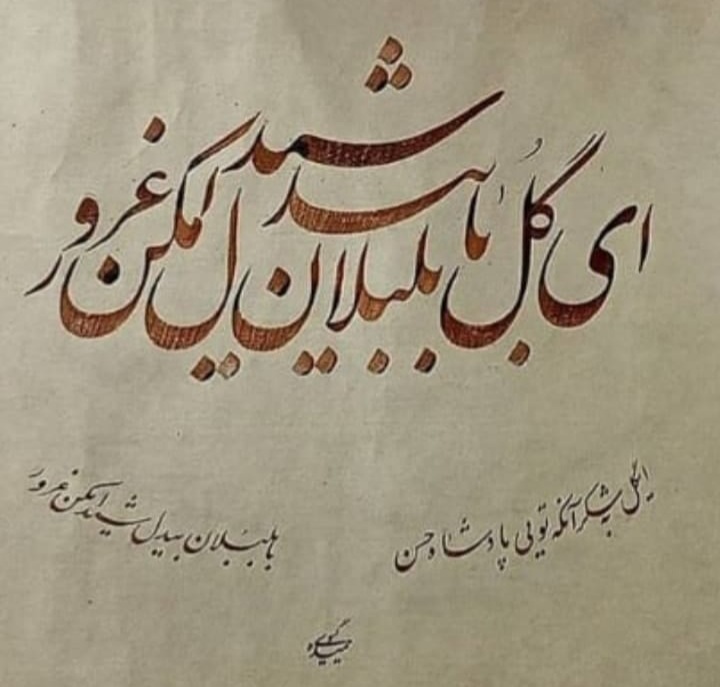 ای گُل با بلبلان بیدل شیدا مکن غرور
ای گل بشکر آنکه تویی پادشاه حسن
با بلبلان بیدل شیدا مکن غرور